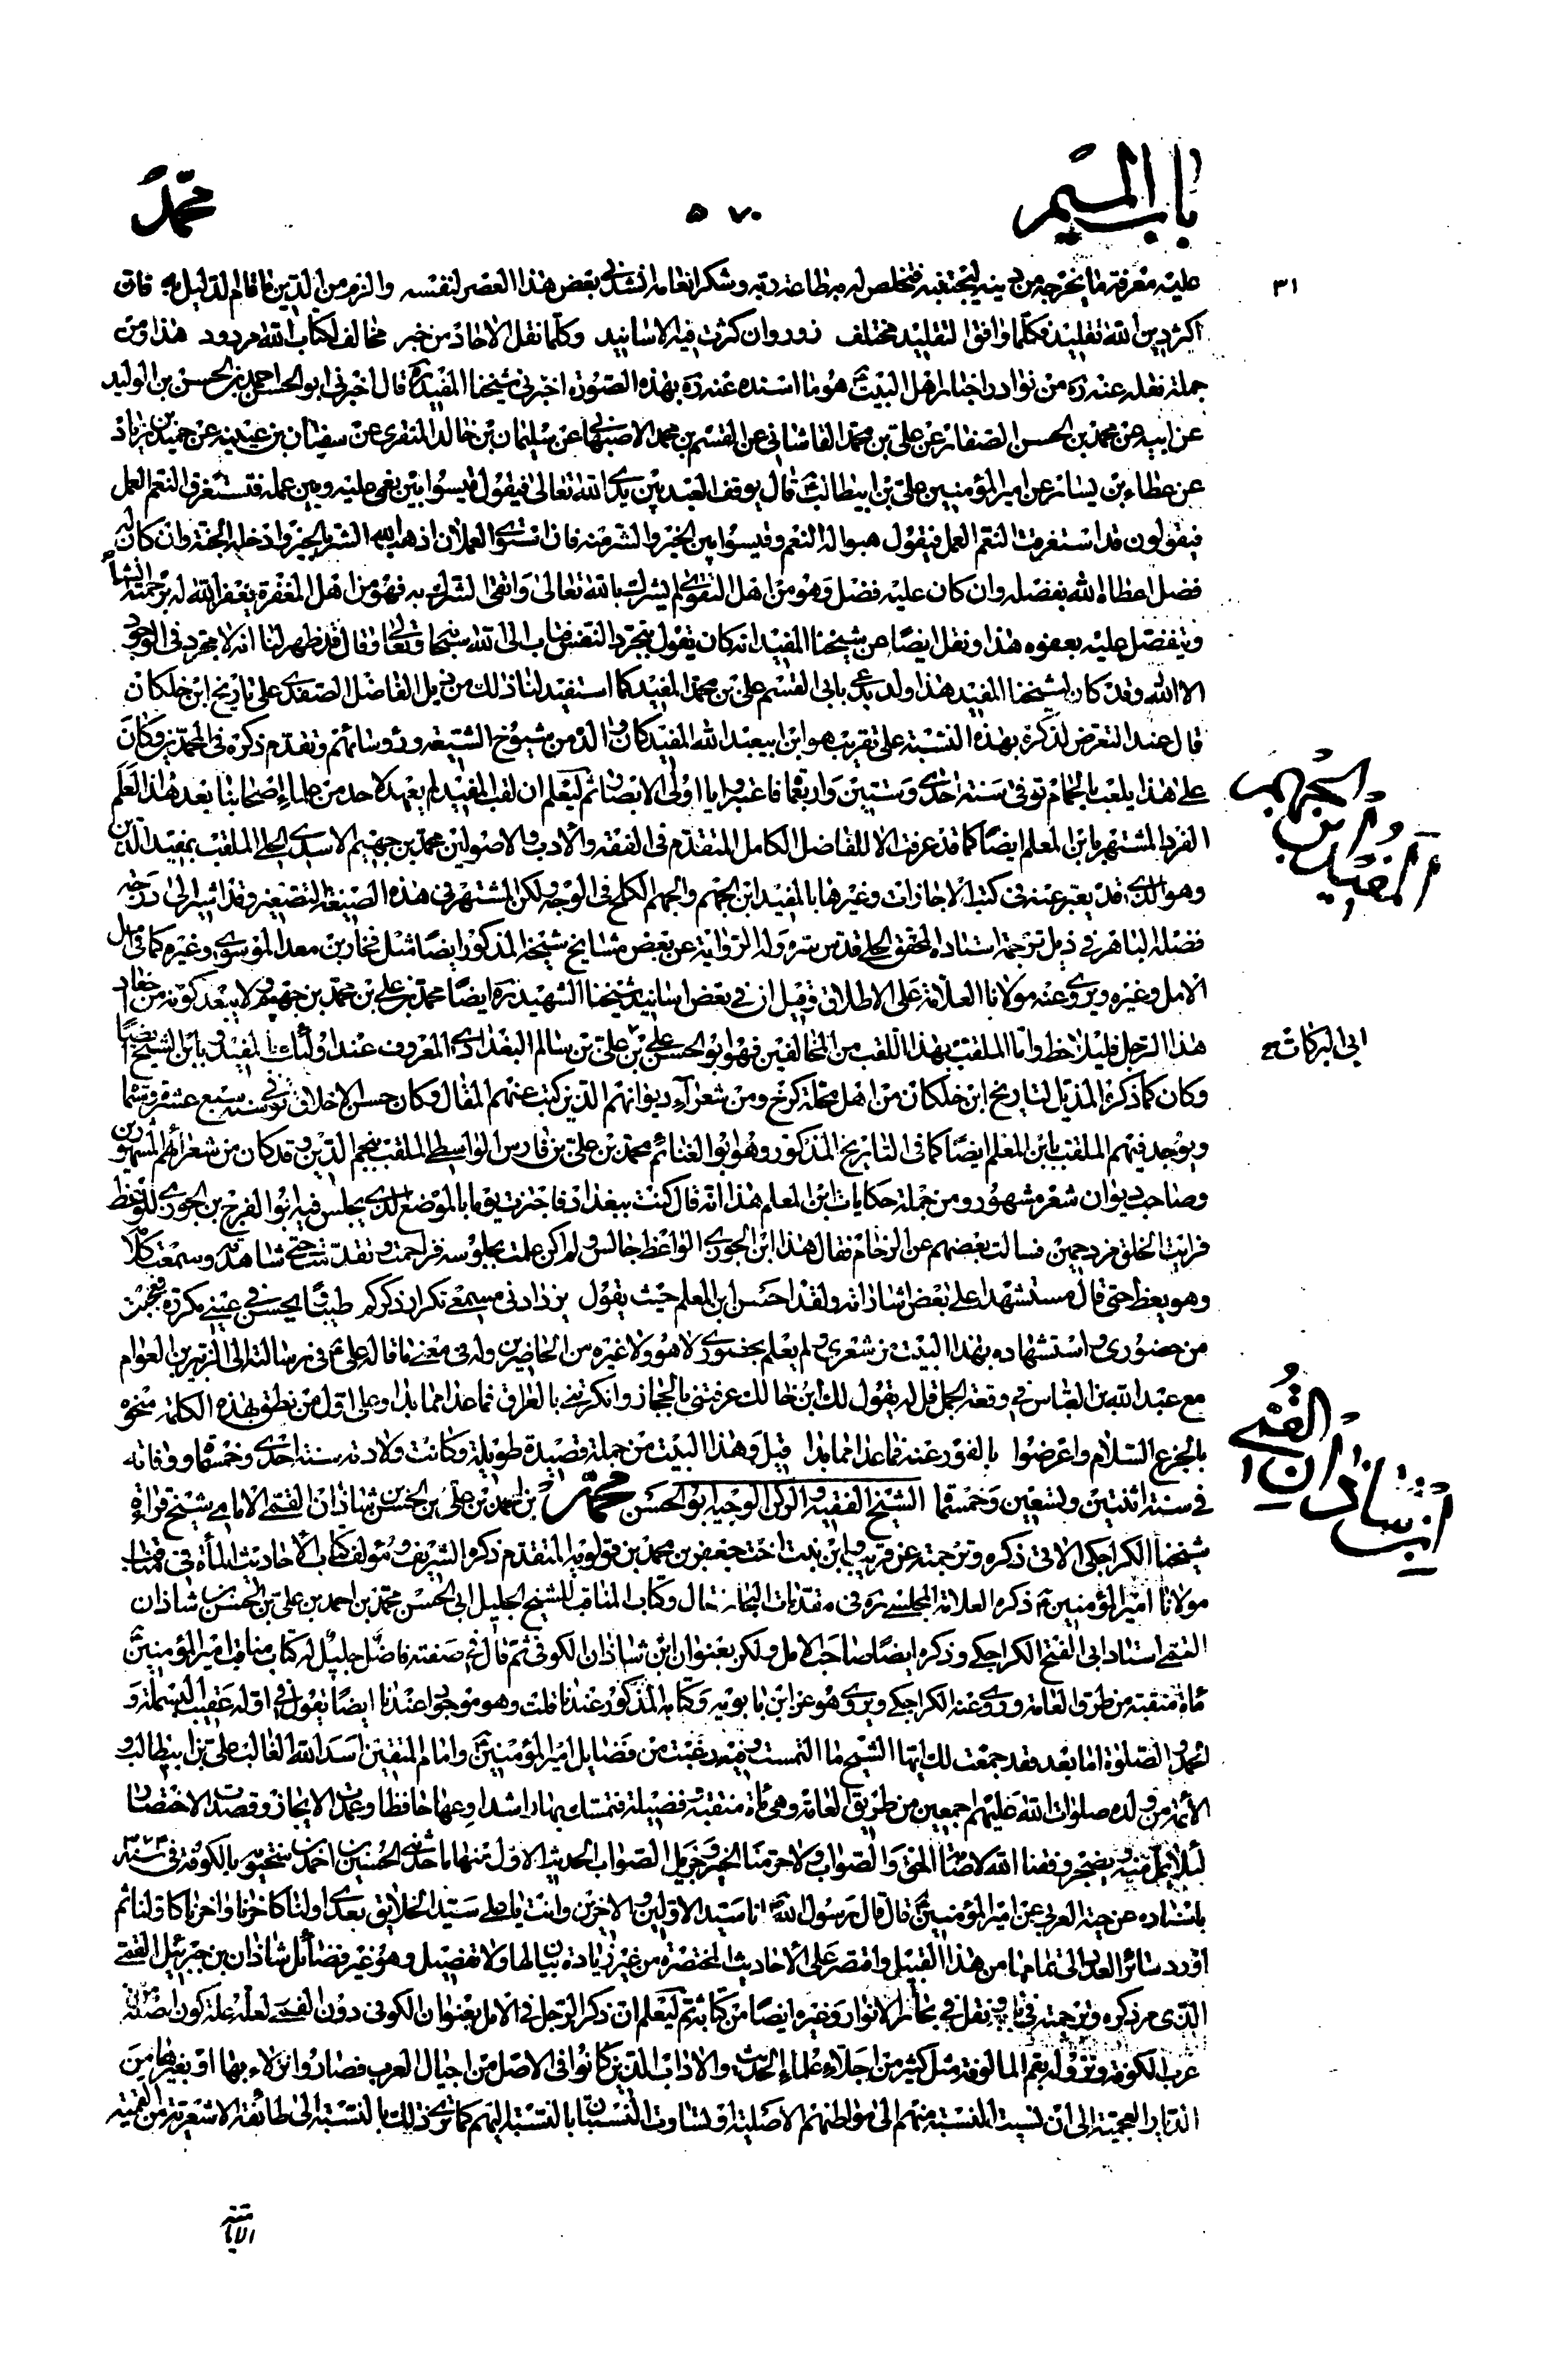 باب الميم
٥٧٠
محمّد
٣١
عليه معرفة ما يخرجه من دينه ليجتنبه فتخلص له به طاعة ربه وشكر انعامه انشدنى بعض هذا العصر لنفسه والزم من الدين ما قام الدليل به فان
اكثر دين الله تقليد فكلما وافق التقليد مختلف زور وان كثرت فيه الاسانيد وكلما نقل الاحاد من خبر مخالف لكتاب الله مردود هذا ومن
جملة نقله عنه ره من نوادر اخبار اهل البيت ع هو ما اسنده عنه ره بهذه الصورة اخبرنى شيخنا المفيد ره قال اخبرنى ابو الحسن احمد بن الحسن بن الوليد
عن ابيه عن محمد بن الحسن الصفار عن على بن محمد القاشانى عن القسم بن محمد الاصبهانى عن سليمان بن خالد المنقرى عن سفيان بن عيينه عن حميد بن زياد
عن عطاء بن يسار عن امير المؤمنين على بن ابيطالب ع قال يوقف العبد بين يدى الله تعالى فيقول قيسوا بين نعمى عليه وبين عمله فتستغرق النعم العمل
فيقولون قد استغرقت النعم العمل فيقول هبوا له النعم وقيسوا بين الخير والشر منه فان استوى العملان اذهب الله الشر بالخير وادخله الجنة وان كان له
فضل اعطاه الله بفضله وان كان عليه فضل وهو من اهل التقوى لم يشرك بالله تعالى واتقى الشرك به فهو من اهل المغفرة يغفر الله له برحمته انشاء
ويتفضل عليه بعفوه هذا ونقل ايضًا عن شيخنا المفيد انه كان يقول بتجرد النفس فتاب الى الله سبحانه وتعالى وقال قد ظهر لنا انه لا مجرد فى الوجود
الا الله وقد كان لشيخنا المفيد هذا ولد يدعى بابى القسم على بن محمد المفيد كما استفيد لنا ذلك من ذيل الفاضل الصفدى على تاريخ ابن خلكان
قال عند التعرض لذكره بهذه النسبة على تقريب هو ابن ابيعبد الله المفيد كان والد من شيوخ الشيعه ورؤسائهم وتقدم ذكره فى المحمدين وكان
على هذا يلعب بالحمام توفى سنة احدى وستين واربعمأة فاعتبروا يا اولى الابصار ثم ليعلم ان لقب المفيد لم يعهد لاحد من علماء اصحابنا بعد هذا العلم
الفرد المشتهر بابن المعلم ايضًا كما قد عرفت الا للفاضل الكامل المتقدم فى الفقه والأدب والاصولين محمد بن جهيم الاسدى الحلى الملقب بمفيد الدين
وهو الذى قد يعبر عنه فى كتب الاجازات وغيرها بالمفيد ابن الجهم والجهم الكلح فى الوجه ولكن المشتهر فى هذه الصيغة التصغير وقد اشير الى درجة
فضله الباهر فى ذيل ترجمة استاده المحقق الحلى قدس سره وله الرواية عن بعض مشايخ شيخه المذكور ايضًا مثل فخار بن معد الموسوى وغيره كما فى امل
الامل وغيره ويروى عنه مولانا العلامة على الاطلاق وقيل ان فى بعض اسانيد شيخنا الشهيد ره ايضًا محمد بن على بن محمد بن جهيم ولا يبعد كونه من احفاد
هذا الرجل فليلاحظ واما الملقب بهذا اللقب من المخالفين فهو ابو الحسن على بن على بن سالم البغدادى المعروف عند اولئك بالمفيد وبابن الشيخ ايضًا
وكان كما ذكره المذيل لتاريخ ابن خلكان من اهل محلة كرخ ومن شعراء ديوانهم الذين كتب عنهم المقال وكان حسن الاخلاق توفى سنة سبع عشرة وستمأة
ويوجد فيهم الملقب بابن المعلم ايضًا كما فى التاريخ المذكور وهو ابو الغنائم محمد بن على بن فارس الواسطى الملقب بنجم الدين وقد كان من شعرائهم المشهورين
وصاحب ديوان شعره مشهور ومن جملة حكايات ابن المعلم هذا انه قال كنت ببغداد فاجتزت يوما بالموضع الذى يجلس فيه ابو الفرج بن الجوزى للوعظ
فرايت الخلق مزدحمين فسالت بعضهم عن الزحام فقال هذا ابن الجوزى الواعظ جالس ولم اكن علمت بجلوسه فزاحمت وتقدمت حتى شاهدته وسمعت كلامه
وهو يعظ حتى قال مستشهدا على بعض اشاراته ولقد احسن ابن المعلم حيث يقول يزداد فى مسمعى تكرار ذكركم طيبًا ويحسن فى عينى مكرره فعجبت
من حضورى واستشهاده بهذا البيت من شعرى ولم يعلم بحضورى لا هو ولا غيره من الحاضرين وله فى معنى ما قاله على ع فى رسالته الى الزبير بن العوام
مع عبد الله بن العباس فى وقعة الجمل قل له يقول لك ابن خالك عرفتنى بالحجاز وانكرتنى بالعراق فما عدا مما بدا وعلى اول من نطق بهذه الكلمة منحوه
بالجزع السلام واعرضوا بالغور عنه فما عدا مما بدا قيل وهذا البيت من جملة قصيدة طويلة وكانت ولادته سنة احدى وخمسمأة ووفاته
فى سنة اثنتين وتسعين وخمسمأة الشيخ الفقيه والركن الوجيه ابو الحسن محمّد بن احمد بن على بن الحسن بن شاذان القمى الامامى شيخ قراءة
شيخنا الكراجكى الاتى ذكره وترجمته عن قريب وابن بنت اخت جعفر بن محمد بن قولويه المتقدم ذكره الشريف ومؤلف كتاب الأحاديث المأة فى مناقب
مولانا امير المؤمنين ع ذكره العلامة المجلسى ره فى مقدمات البحار فقال وكتاب المناقب للشيخ الجليل ابى الحسن محمد بن احمد بن على بن الحسن بن شاذان
القمى استاد ابى الفتح الكراجكى وذكره ايضًا صاحب الامل ولكن بعنوان ابن شاذان الكوفى ثم قال فى صفته فاضل جليل له كتاب مناقب امير المؤمنين ع
مأة منقبة من طرق العامة وروى عنه الكراجكى ويروى هو عن ابن بابويه وكتابه المذكور عندنا قلت وهو موجود عندنا ايضًا يقول فى اوله عقيب البسملة و
الحمد والصلوة اما بعد فقد جمعت لك ايها الشيخ ما التمست وفيه رغبت من فضايل امير المؤمنين ع وامام المتقين اسد الله الغالب على بن ابيطالب و
الأئمة من ولده صلوات الله عليهم اجمعين من طريق العامة وهى مأة منقبة وفضيلة فتمسك بها راشدا وعها حافظا وعمدت الايجاز وقصدت الاختصار
لئلا يمل منه ويضجر وفقنا الله لاصابة الحق والصواب ولا حرمنا الخير وجزيل الصواب الحديث الاول منها ما حدثنى الحسين بن احمد بن سختويه بالكوفة فى سنة ٣٧٤
باسناده عن حبة العرنى عن امير المؤمنين ع قال قال رسول الله ص انا سيد الاولين والاخرين وانت يا على سيد الخلايق بعدى اولنا كاخرنا واخرنا كاولنا ثم
اورد سائر العدد الى تمامها من هذا القبيل واقتصر على الأحاديث المختصرة من غير زيادة بيان لها ولا تفصيل وهو غير فضائل شاذان بن جبرئيل القمى
الذى مر ذكره وترجمته فى بابه ونقل فى بحار الانوار وغيره ايضًا من كتابه ثم ليعلم ان ذكر الرجل فى الامل بعنوان الكوفى دون القمى لعله علة كون اصله من
عرب الكوفة ونزوله بقم المألوفة مثل كثير من اجلاء علماء الحديث والاداب الذين كانوا فى الاصل من اجيال العرب فصاروا نزلاء بها او بغيرها من
الديار العجمية الى ان نسيت النسبة منهم الى مواطنهم الاصلية او تساوت النسبتان بالنسبة اليهم كما ترى ذلك بالنسبة الى طائفة الاشعرية من القمية
المفيد ابن الجهم
ابى البركات ح
ابن شاذان القمى